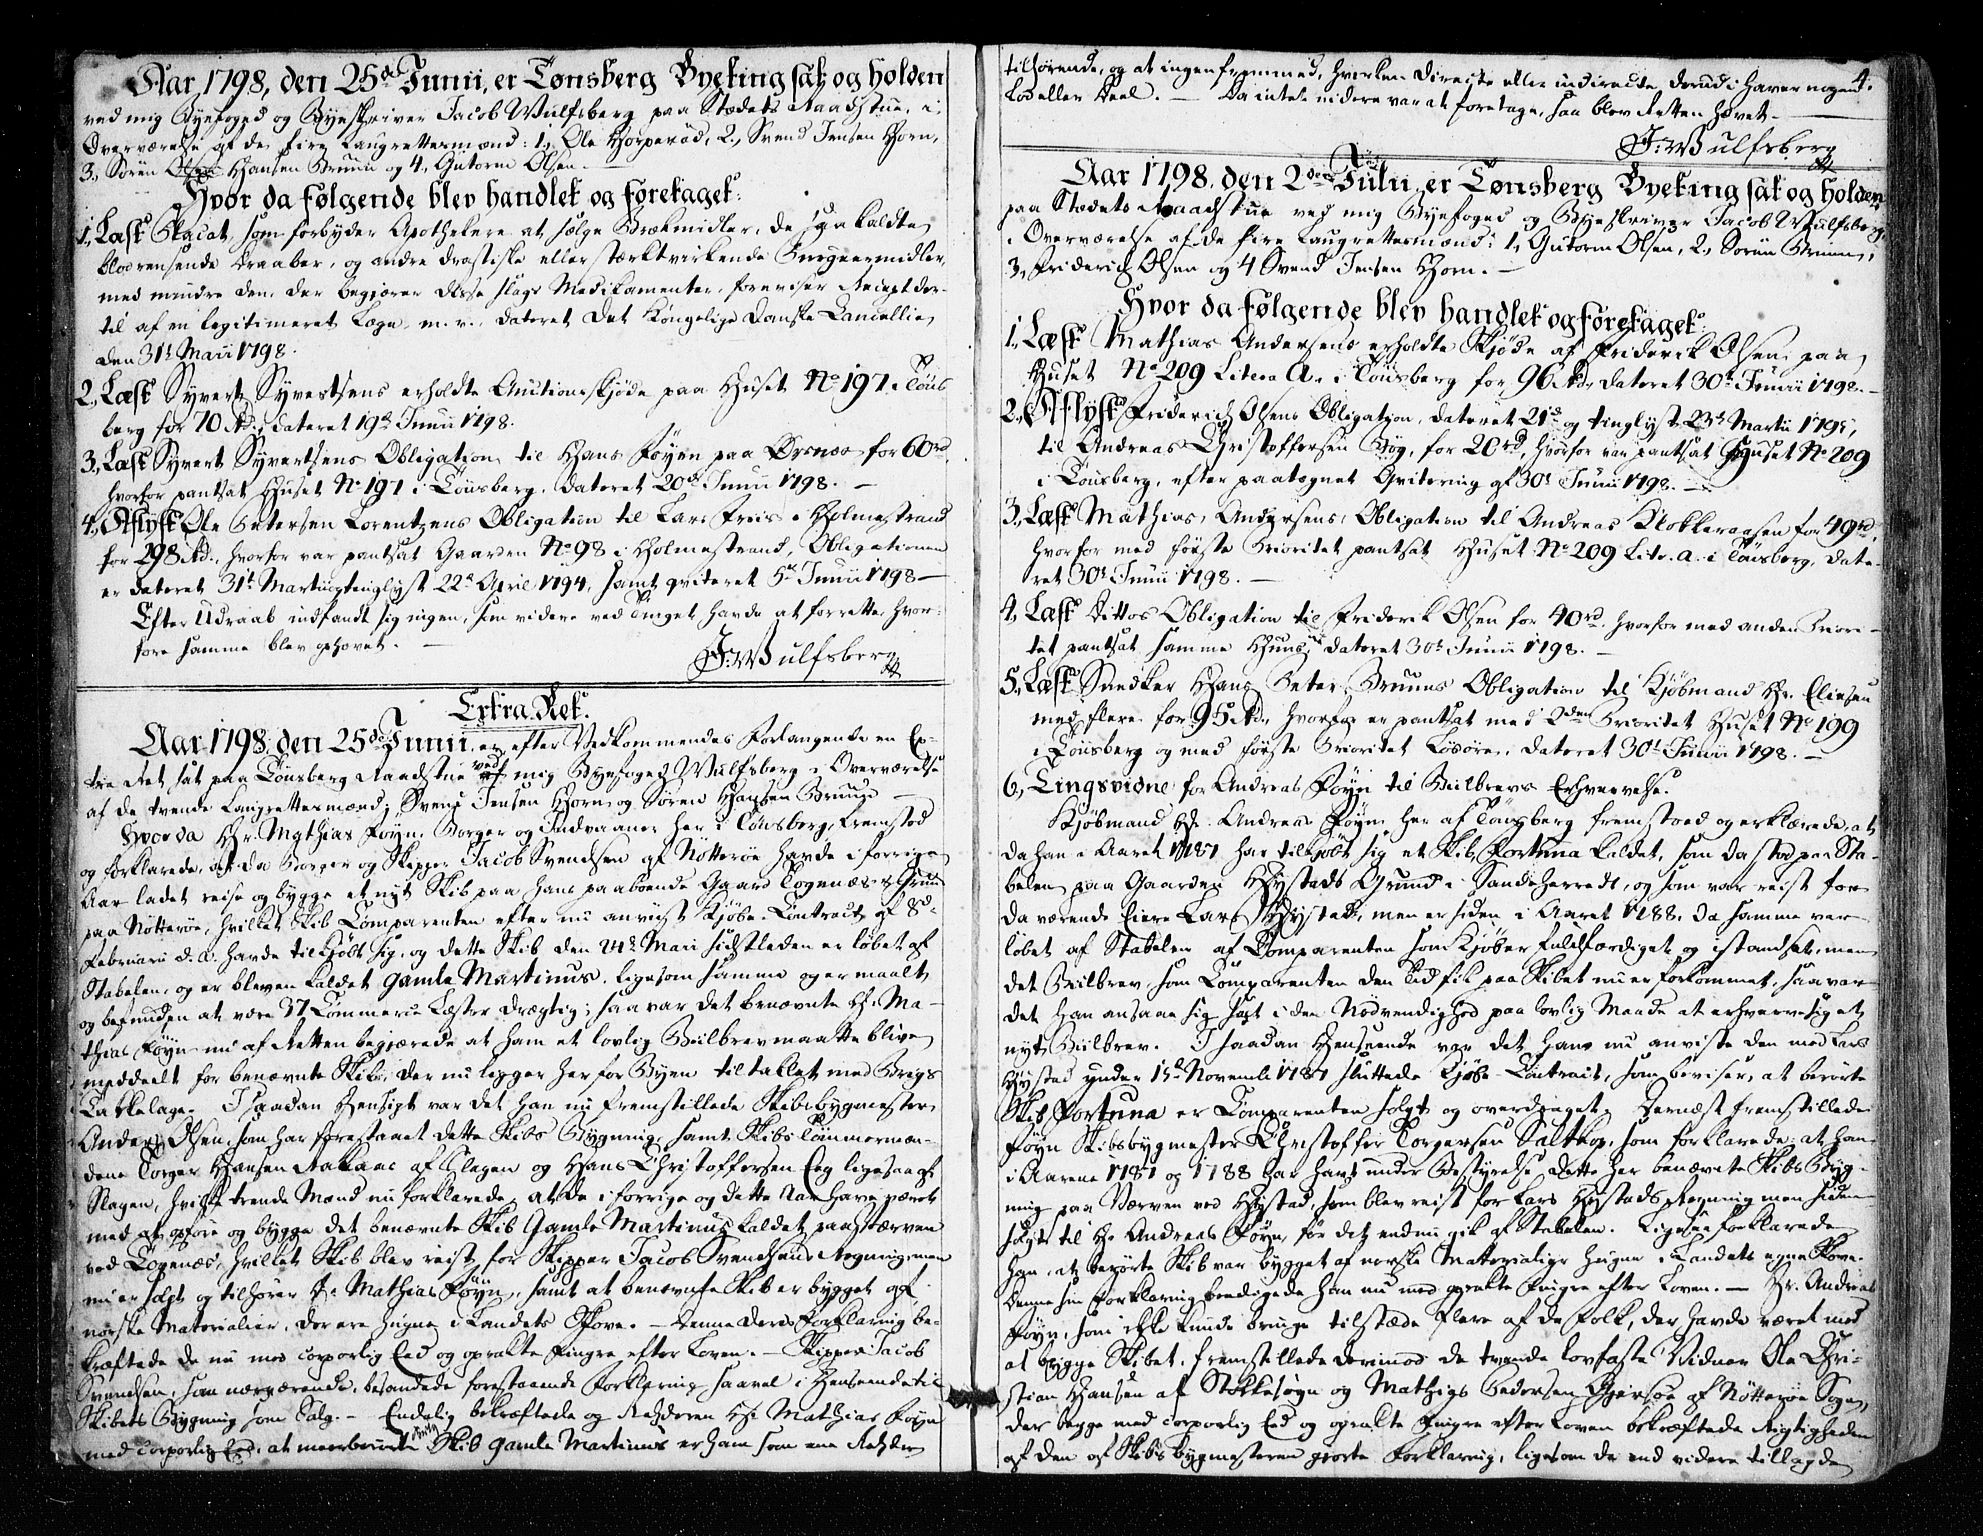 Aar 1798, den 25de Junii, er Tønsberg Byeting sat og holden
ved mig Byefoged og Byeskriver Jacob Wulfsberg paa Stædets Raadstue, i
Overværelse af de fire Laugrettesmænd: 1, Ole Horperöd, 2, Svend Jensen Horn,
3, Sören Hansen Bruun og 4, Gutorm Olsen.
Hvor da følgende blev handlet og foretaget:
1, Læst Placat, som forbyder Apothekere at sælge Brækmidler, de saa kaldte
blodrensende Draaber, og andre drastiske eller stærktvirkende Purgeermidler,
med mindre den, der begjærer disse slags Medikamenter, foreviser Recept der-
til af en legitimeret Læge m. v., dateret Det Kongelige Danske Cancellie
den 31t Maii 1798.
2, Læst Syvert Syvertsens erholdte Auctionsskjöde paa Huset No 197 i Töns-
berg for 70 Rd, dateret 19de Junii 1798.
3, Læst Syvert Syvertsens Obligation til Hans Föyn paa Örsnæs for 60rd
hvorfor pantsat Huset No 197 i Tönsberg, dateret 20de Junii 1798. —
4, Aflyst Ole Petersen Lorentzens Obligation til Lars Friis i Holmestrand
for 298 Rd., hvorfor var pantsat Gaarden No 98 i Holmestrand, Obligationen
er dateret 31t Martii og tinglyst 22d April 1794, samt qviteret 5te Junii 1798 —
Efter Udraab indfandt sig ingen, som videre ved Tinget havde at forrette, hvor-
fore samme blev ophævet. —
J: Wulfsberg
Extra Ret.
Aar 1798, den 25de Junii, er efter Vedkommendes Forlangende en Ex-
tra Ret sat paa Tönsberg Raadstue ved mig Byefoged Wulfsberg i Overværelse
af de tvende Laugrettesmænd, Svend Jensen Horn og Sören Hansen Bruun —
Hvor da Hr. Mathias Föyn, Borger og Indvaaner her i Tönsberg, fremstod
og forklarede, at da Borger og Skipper Jacob Svendsen af Nötteröe havde i forrige
Aar ladet reise og bygge et nyt Skib paa hans paaboende Gaard Togenæs's Grund
paa Nötteröe, hvilket Skib Comparenten efter nu anviist Kjöbe-Contract af 8de
Februarii d. A. havde tilkjöbt sig, og dette Skib den 24de Maii sidstleden er löbet af
Stabelen, og er bleven kaldet Gamle Martinus, ligesom samme og er maalt
og befunden at være 37 Commerce Læster drægtig; saa var det benævnte Hr. Ma-
thias Föyn nu af Retten begjærede at ham et lovlig Biilbrev maatte blive
meddeelt for benævnte Skib, der nu ligger her for Byen tiltaklet med Brigs
Takkelage. I saadan Hensigt var det han nu fremstillede Skibsbygmester
Anders Olsen, som har forestaaet dette Skibs Bygning, samt Skibstömmermæn-
dene Torger Hansen af Slagen og Hans Christoffersen Eeg ligesaa af
Slagen, hvilke trende Mænd nu forklarede, at de i forrige og dette Aar have været
med at opföre og bygge det benævnte Skib Gamle Martinus kaldet, paa Værven
ved Togenæs, hvilket Skib blev reist for Skipper Jacob Svendsens Regning, men
nu er solgt og tilhörer Hr. Mathias Föyn, samt at benævnte Skib er bygget af
norske Materialier, der ere hugne i Landets Skove. — Denne deres Forklaring be-
kræftede de nu med corporlig Eed og oprakte Fingre efter Loven. — Skipper Jacob
Svendsen, som nærværende, besandede forestaaende Forklaring saavel i Henseende til
Skibets Bygning som Salg. — Endelig bekræftede og Rhederen Hr Mathias Föyn
med corporlig Eed, at meerbemeldte Skib Gamle Martinus er ham som ene Rheder
4.
tilhörende, og at ingen fremmed, hverken directe eller indirecte, derudi haver nogen
Lod eller Deel. — Da intet videre var at foretage, saa blev Retten hævet. —
J: Wulfsberg
Aar 1798, den 2den Julii, er Tønsberg Byeting sat og holden
paa Stædets Raadstue ved mig Byefoged og Byeskriver Jacob Wulfsberg,
i Overværelse af de fire Laugrettesmænd: 1, Gutorm Olsen, 2, Sören Bruun,
3, Friderich Olsen og 4 Svend Jensen Horn. —
Hvor da følgende blev handlet og foretaget:
1, Læst Mathias Andersens erholdte Skjöde af Friderik Olsen paa
Huset No 209 Litera A. i Tönsberg for 96 Rd, dateret 30te Junii 1798. —
2, Aflyst Friderich Olsens Obligation, dateret 21de og tinglyst 23de Martii 1795,
til Andreas Christoffersen Bög, for 20rd, hvorfor var pantsat Huset No 209
i Tönsberg, efter paategnet Qvitering af 30t Junii 1798. —
3, Læst Mathias Andersens Obligation til Andreas Klokkeraasen for 49rd,
hvorfor med förste Prioritet pantsat Huset No 209 Litr. a. i Tönsberg, date-
ret 30t Junii 1798. —
4, Læst Dittos Obligation til Friderik Olsen for 40rd, hvorfor med anden Priori-
tet pantsat samme Huus, dateret 30t Junii 1798. —
5, Læst Snedker Hans Peter Bruuns Obligation til Kjöbmand Hr. Eliesen
med flere for 95 Rd, hvorfor er pantsat med 2den Prioritet Huset No 199
i Tönsberg og med förste Prioritet Lösöre, dateret 30t Junii 1798. —
6, Tingsvidne for Andreas Föyn til Biilbrevs Erhvervelse.
Kjöbmand Hr. Andreas Föyn her af Tönsberg fremstoed og erklærede, at
da han i Aaret 1787 har tilkjöbt sig et Skib, Fortuna kaldet, som da stod paa Sta-
belen paa Gaarden Hystads Grund i Sandeherredt, og som var reist for
da værende Eiere Lars Hystad, men er siden i Aaret 1788, da samme var
löbet af Stabelen af Comparenten som Kjöber fuldfærdiget og istandsat, men
det Biilbrev, som Comparenten den Tid fik paa Skibet nu er forkommet, saa var
det han ansaae sig sat i den Nödvendighed paa lovlig Maade at erhverve sig et
nyt Biilbrev. I saadan Henseende var det han nu anviste den med Lars
Hystad under 15de Novembr 1787 sluttede Kjöbe-Contract, som beviser, at berörte
Skib Fortuna er Comparenten solgt og overdraget. Dernæst fremstillede
Föyn Skibsbygmester Christoffer Torgersen Saltkop, som forklarede, at han
i Aarene 1787 og 1788 har havt under Bestyrelse dette her benævnte Skibs Byg-
ning paa Værven ved Hystad, som blev reist for Lars Hystads Regning men siden
solgt til Hr Andreas Föyn, för det endnu gik af Stabelen. Ligesaa forklarede
han, at berörte Skib var bygget af norske Materialier hugne i Landets egne Skove.
Denne sin Forklaring beedigede han nu med oprakte Fingre efter Loven. — Hr. Andreas
Föyn, som ikke kunde bringe tilstæde flere af de Folk, der havde været med
at bygge Skibet, fremstillede derimod de tvende lovfaste Vidner Ole Chri-
stian Hansen af Stokkesogn og Mathias Pedersen af Nötteröe Sogn,
der begge med corporlig Eed og oprakte Fingre efter Loven bekræftede Rigtigheden
af den af Skibsbygmesteren gjorte Forklaring, ligesom de end videre tillagde